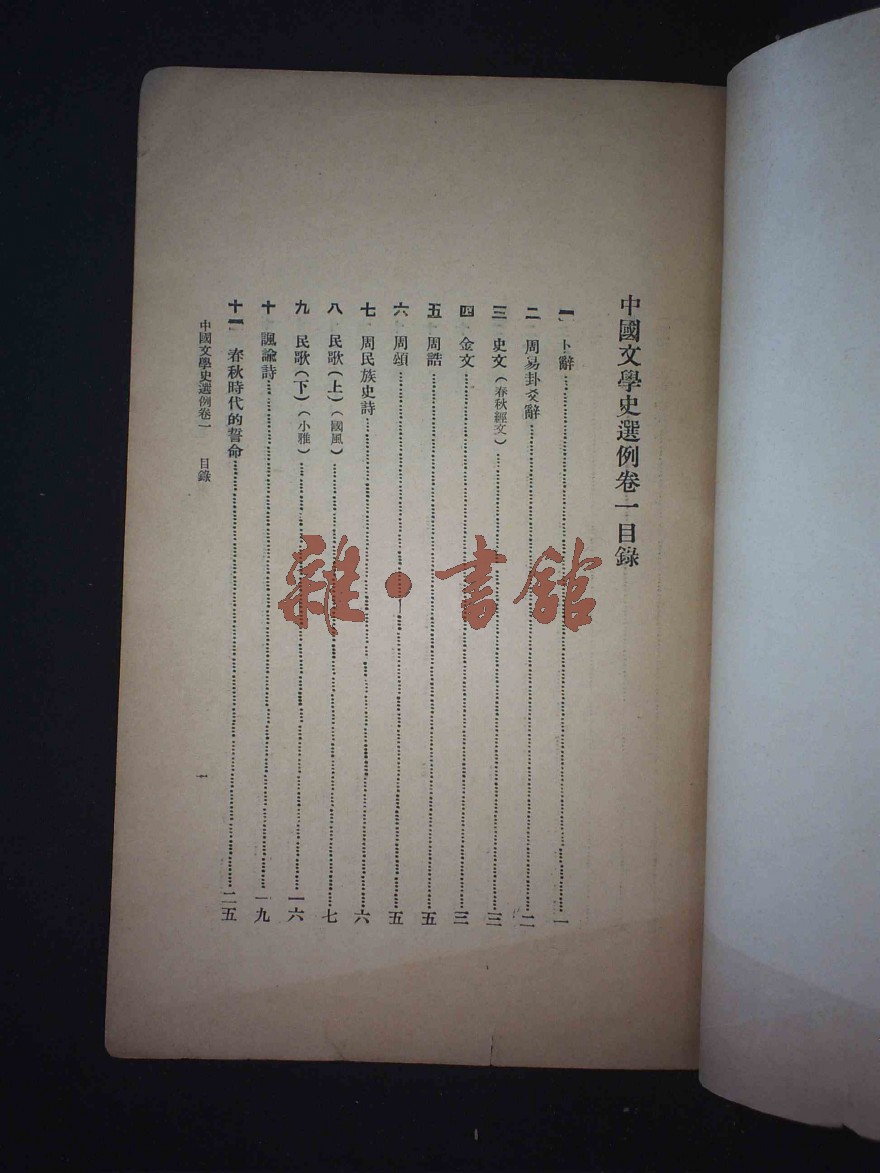 中國文學史選例卷一目錄
一 卜辭……一
二 周易卦爻辭……二
三 史文(春秋經文)……三
四 金文……三
五 周誥……五
六 周頌……五
七 周民族史詩……六
八 民歌(上)(國風)……七
九 民歌(下)(小雅)……一六
十 諷諭詩……一九
十一 春秋時代的誓命……二五
中國文學史選例卷一 目錄
一
雜·書館